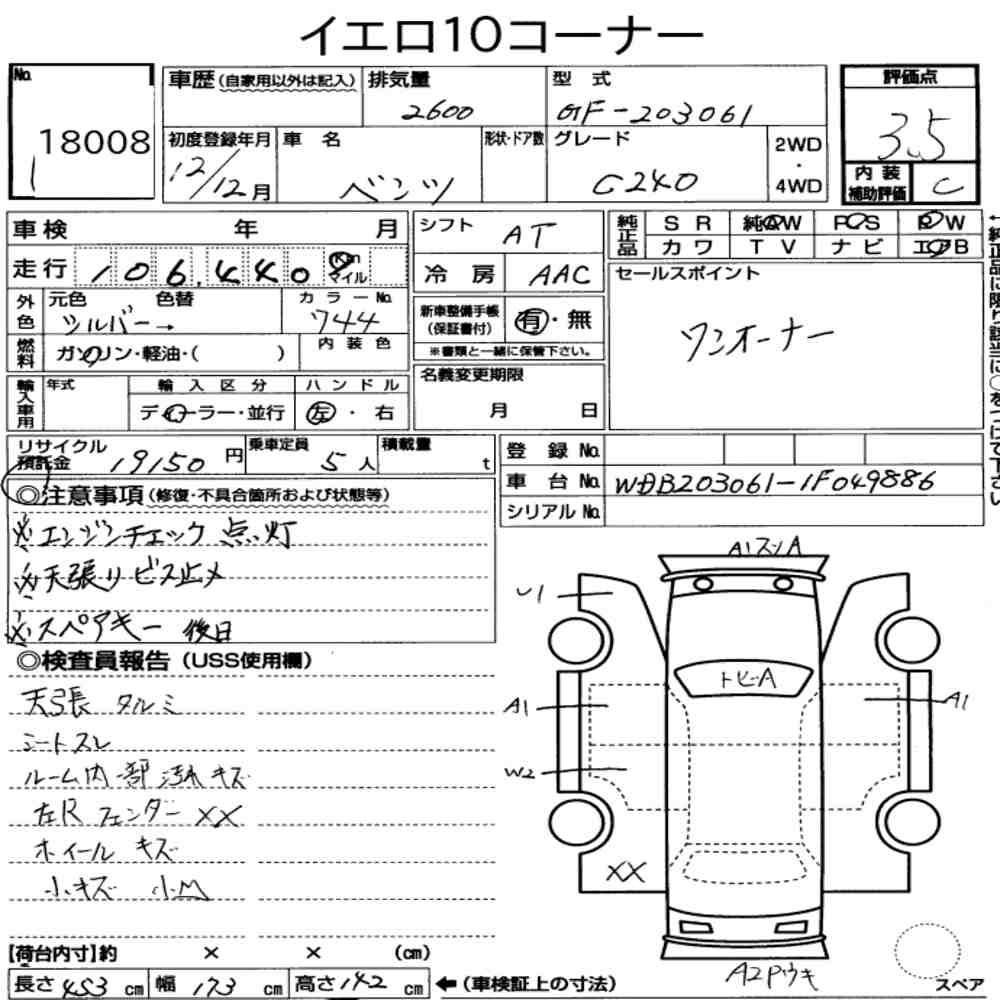 イエロ10コーナー
No. 18008
1
車歴(自家用以外は記入)
排気量 2600
型式 GF-203061
評価点 3.5
内装補助評価 C
初度登録年月 12/12月
車名 ベンツ
形状・ドア数
グレード C240
2WD・4WD
車検 年 月
走行 106,440 Km マイル
シフト AT
冷房 AAC
純正品 SR 純AW PS PW
カワ TV ナビ エアB
←純正品に限り該当に○をつけて下さい
外色 元色 シルバー→ 色替
カラーNo. 744
内装色
燃料 ガソリン・軽油・( )
新車整備手帳(保証書付) 有・無
※書類と一緒に保管下さい。
セールスポイント
ワンオーナー
輸入車用 年式
輸入区分 ディーラー・並行
ハンドル 左・右
名義変更期限 月 日
リサイクル預託金 19150円
乗車定員 5人
積載量 t
登録No.
車台No. WDB203061-1F049886
シリアルNo.
◎注意事項(修復・不具合箇所および状態等)
※エンジンチェック点灯
※天張リビス止メ
※スペアキー 後日
◎検査員報告(USS使用欄)
天張 タルミ
シートスレ
ルーム内一部汚れ キズ
左Rフェンダー XX
ホイール キズ
小キズ 小凹
A1スリA
U1
トビーA
A1
A1
W2
XX
A2Pウキ
スペア
【荷台内寸】約 × × (cm)
長さ 453 cm 幅 173 cm 高さ 142 cm ←(車検証上の寸法)